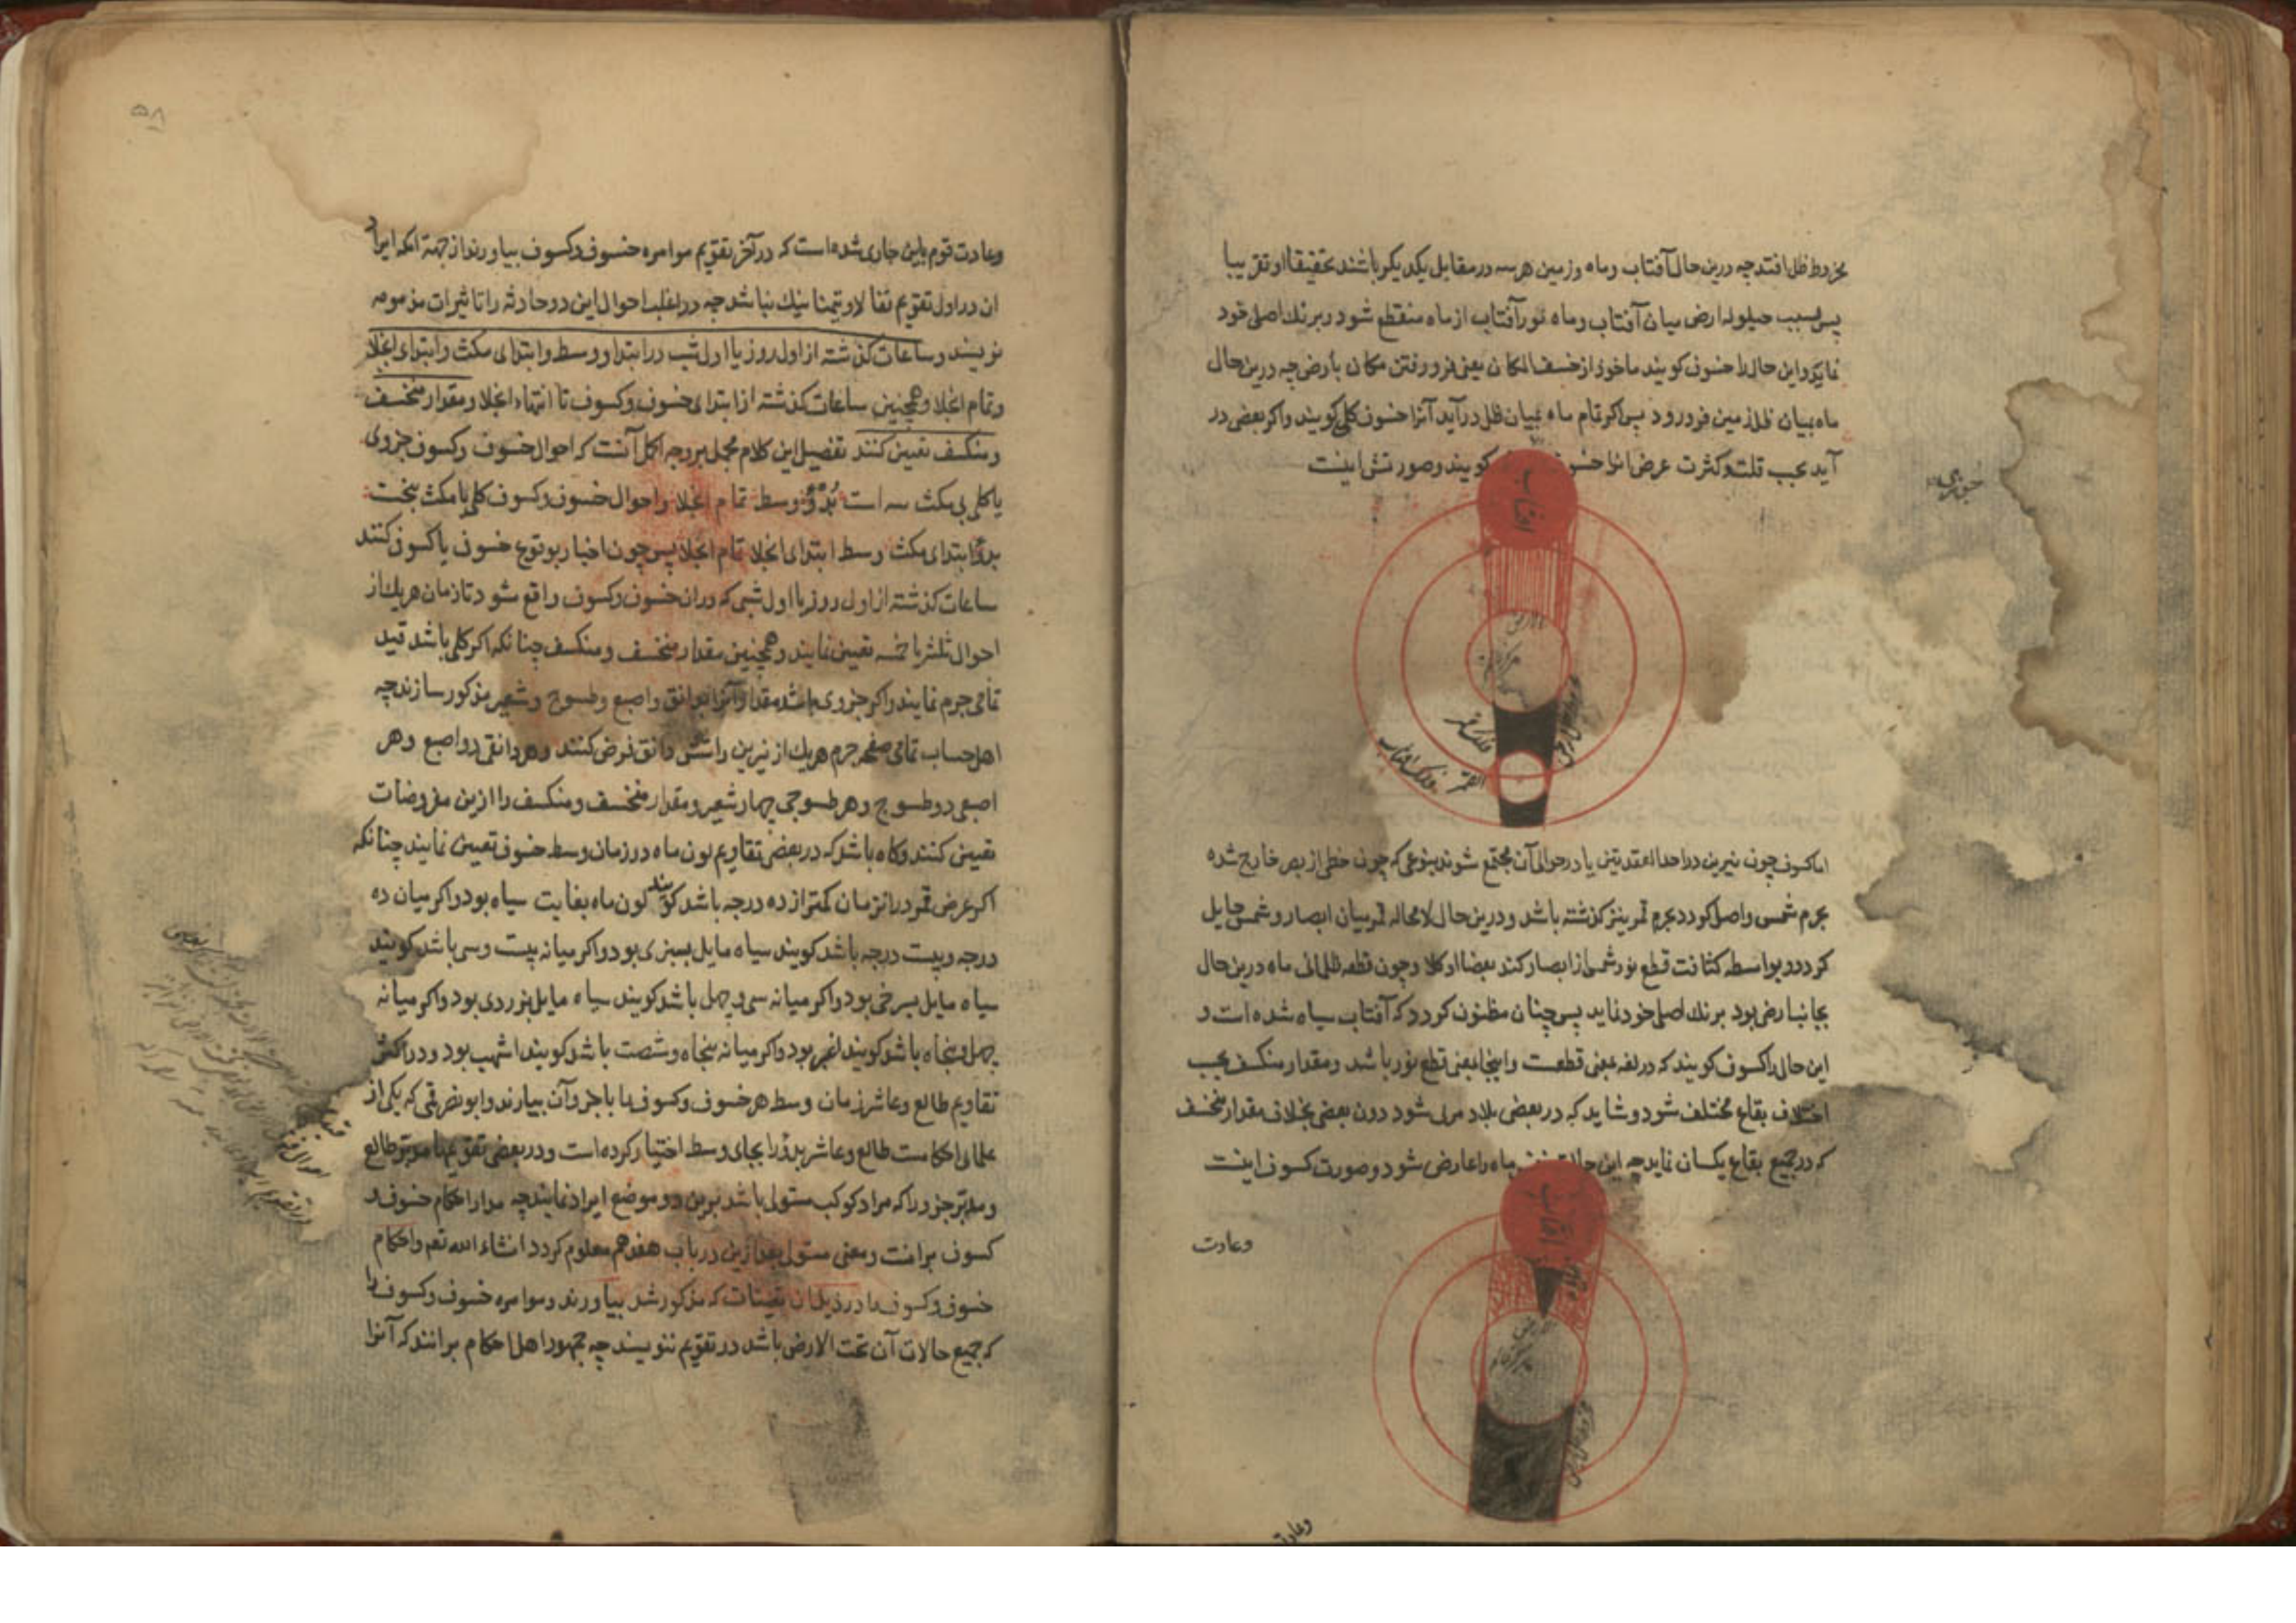 مخروط ظل افتد چه درین حال آفتاب و ماه و زمین هر سه در مقابل یکدیکر باشند تحقیقا او تقریبا
پس بسبب حیلوله ارض میان آفتاب و ماه نور آفتاب از ماه منقطع شود و برنك اصلی خود
نماید و این حال را خسوف کویند ماخوذ از خسف المکان یعنی فرو رفتن مکان بارض چه درین حال
ماه بمیان ظل زمین فرو رود پس اکر تمام ماه بمیان ظل درآید آنرا خسوف کلی کویند و اکر بعضی در
آید بحسب قلت و کثرت عرض انرا خسوف کویند و صورتش اینست
جزوی
افتاب
الارض
مرکز
فلك قمر
القمر
فلك افتاب
مخروط ظل ارض
اما کسوف چون نیرین در احد العقدتین یا در حوالی آن مجتمع شوند بنوعی که چون خطی از بصر خارج شده
بجرم شمس واصل کردد بجرم قمر نیز کذشته باشد و درین حال لامحاله قمر میان ابصار و شمس حایل
کردد و بواسطه کثافت قطع نور شمس از ابصار کند بعضا او کلا و چون قطعه ظلمانی ماه درین حال
بجانب ارض بود برنك اصلی خود نماید پس چنان مظنون کردد که آفتاب سیاه شده است و
این حال را کسوف کویند که در لغه بمعنی قطعست و اینجا بمعنی قطع نور باشد و مقدار منکسف بحسب
اختلاف بقاع مختلف شود و شاید که در بعضی بلاد مرئی شود دون بعضی بخلاف مقدار منخسف
که در جمیع بقاع یکسان نماید چه این حالت ماه را عارض شود و صورت کسوف اینست
افتاب
وعادت
مخروط ظل ارض
وعادت
۵۸
و عادت قوم باین جاری شده است که در آخر تقویم موامره خسوف و کسوف بیاورند از جهة انکه ایراد
ان در اول تقویم تفالا و تیمنا نیك نباشد چه در اغلب احوال این دو حادثه را تاثیرات مذمومه
نویسند و ساعات کذشته از اول روز یا اول شب در ابتدا و وسط و ابتدای مکث و ابتدای انجلا
و تمام انجلا و همچنین ساعات کذشته از ابتدای خسوف و کسوف تا انتهاء انجلا و مقدار منخسف
و منکسف تعیین کنند تفصیل این کلام مجمل بر وجه اکمل آنست که احوال خسوف و کسوف جزوی
یا کلی بی مکث سه است بدؤ وسط تمام انجلا و احوال خسوف و کسوف کلی با مکث پنجست
بدؤ ابتدای مکث وسط ابتدای انجلا تمام انجلا پس چون اخبار بوقوع خسوف یا کسوف کنند
ساعات کذشته از اول روز یا اول شبی که در ان خسوف و کسوف واقع شود تا زمان هریك از
احوال ثلثه یا خمسه تعیین نمایند و همچنین مقدار منخسف و منکسف چنانکه اکر کلی باشد قید
تمامی جرم نمایند و اکر جزوی باشد مقدار آنرا بدوانق و اصبع و طسوج و شعیر مذکور سازند چه
اهل حساب تمامی صفحه جرم هریك از نیرین را شش دانق فرض کنند و هر دانقی دو اصبع و هر
اصبعی دو طسوج و هر طسوجی چهار شعیر و مقدار منخسف و منکسف را ازین مفروضات
تعیین کنند و کاه باشد که در بعضی تقاویم لون ماه در زمان وسط خسوف تعیین نمایند چنانکه
اکر عرض قمر در انزمان کمتر از ده درجه باشد کویند کون ماه بغایت سیاه بود و اکر میان ده
درجه و بیست درجه باشد کویند سیاه مایل بسبزی بود و اکر میانه بیست و سی باشد کویند
سیاه مایل بسرخی بود و اکر میانه سی و چهل باشد کویند سیاه مایل بزردی بود و اکر میانه
چهل و پنجاه باشد کویند اغبر بود و اکر میانه پنجاه و شصت باشد کویند اشهب بود و در اکثر
تقاویم طالع و عاشر زمان وسط هر خسوف و کسوف را با جزو آن بیارند و ابو نصر قمی که یکی از
علمای احکامست طالع و عاشر بدؤ را بجای وسط اختیار کرده است و در بعضی تقویم‌نا موبز طالع
و مدبر جزو را که مراد کوکب مستولی باشد برین دو موضع ایراد نمایند چه مدار احکام خسوف و
کسوف برانست و معنی مستولی بعد ازین در باب هفدهم معلوم کردد انشاء الله تعم و احکام
خسوف و کسوف را در ذیل ان بقیتات که مذکور شد بیاورند و موامره خسوف و کسوف را
که جمیع حالات آن تحت الارض باشد در تقویم ننویسند چه جمهور اهل احکام برانند که آنرا